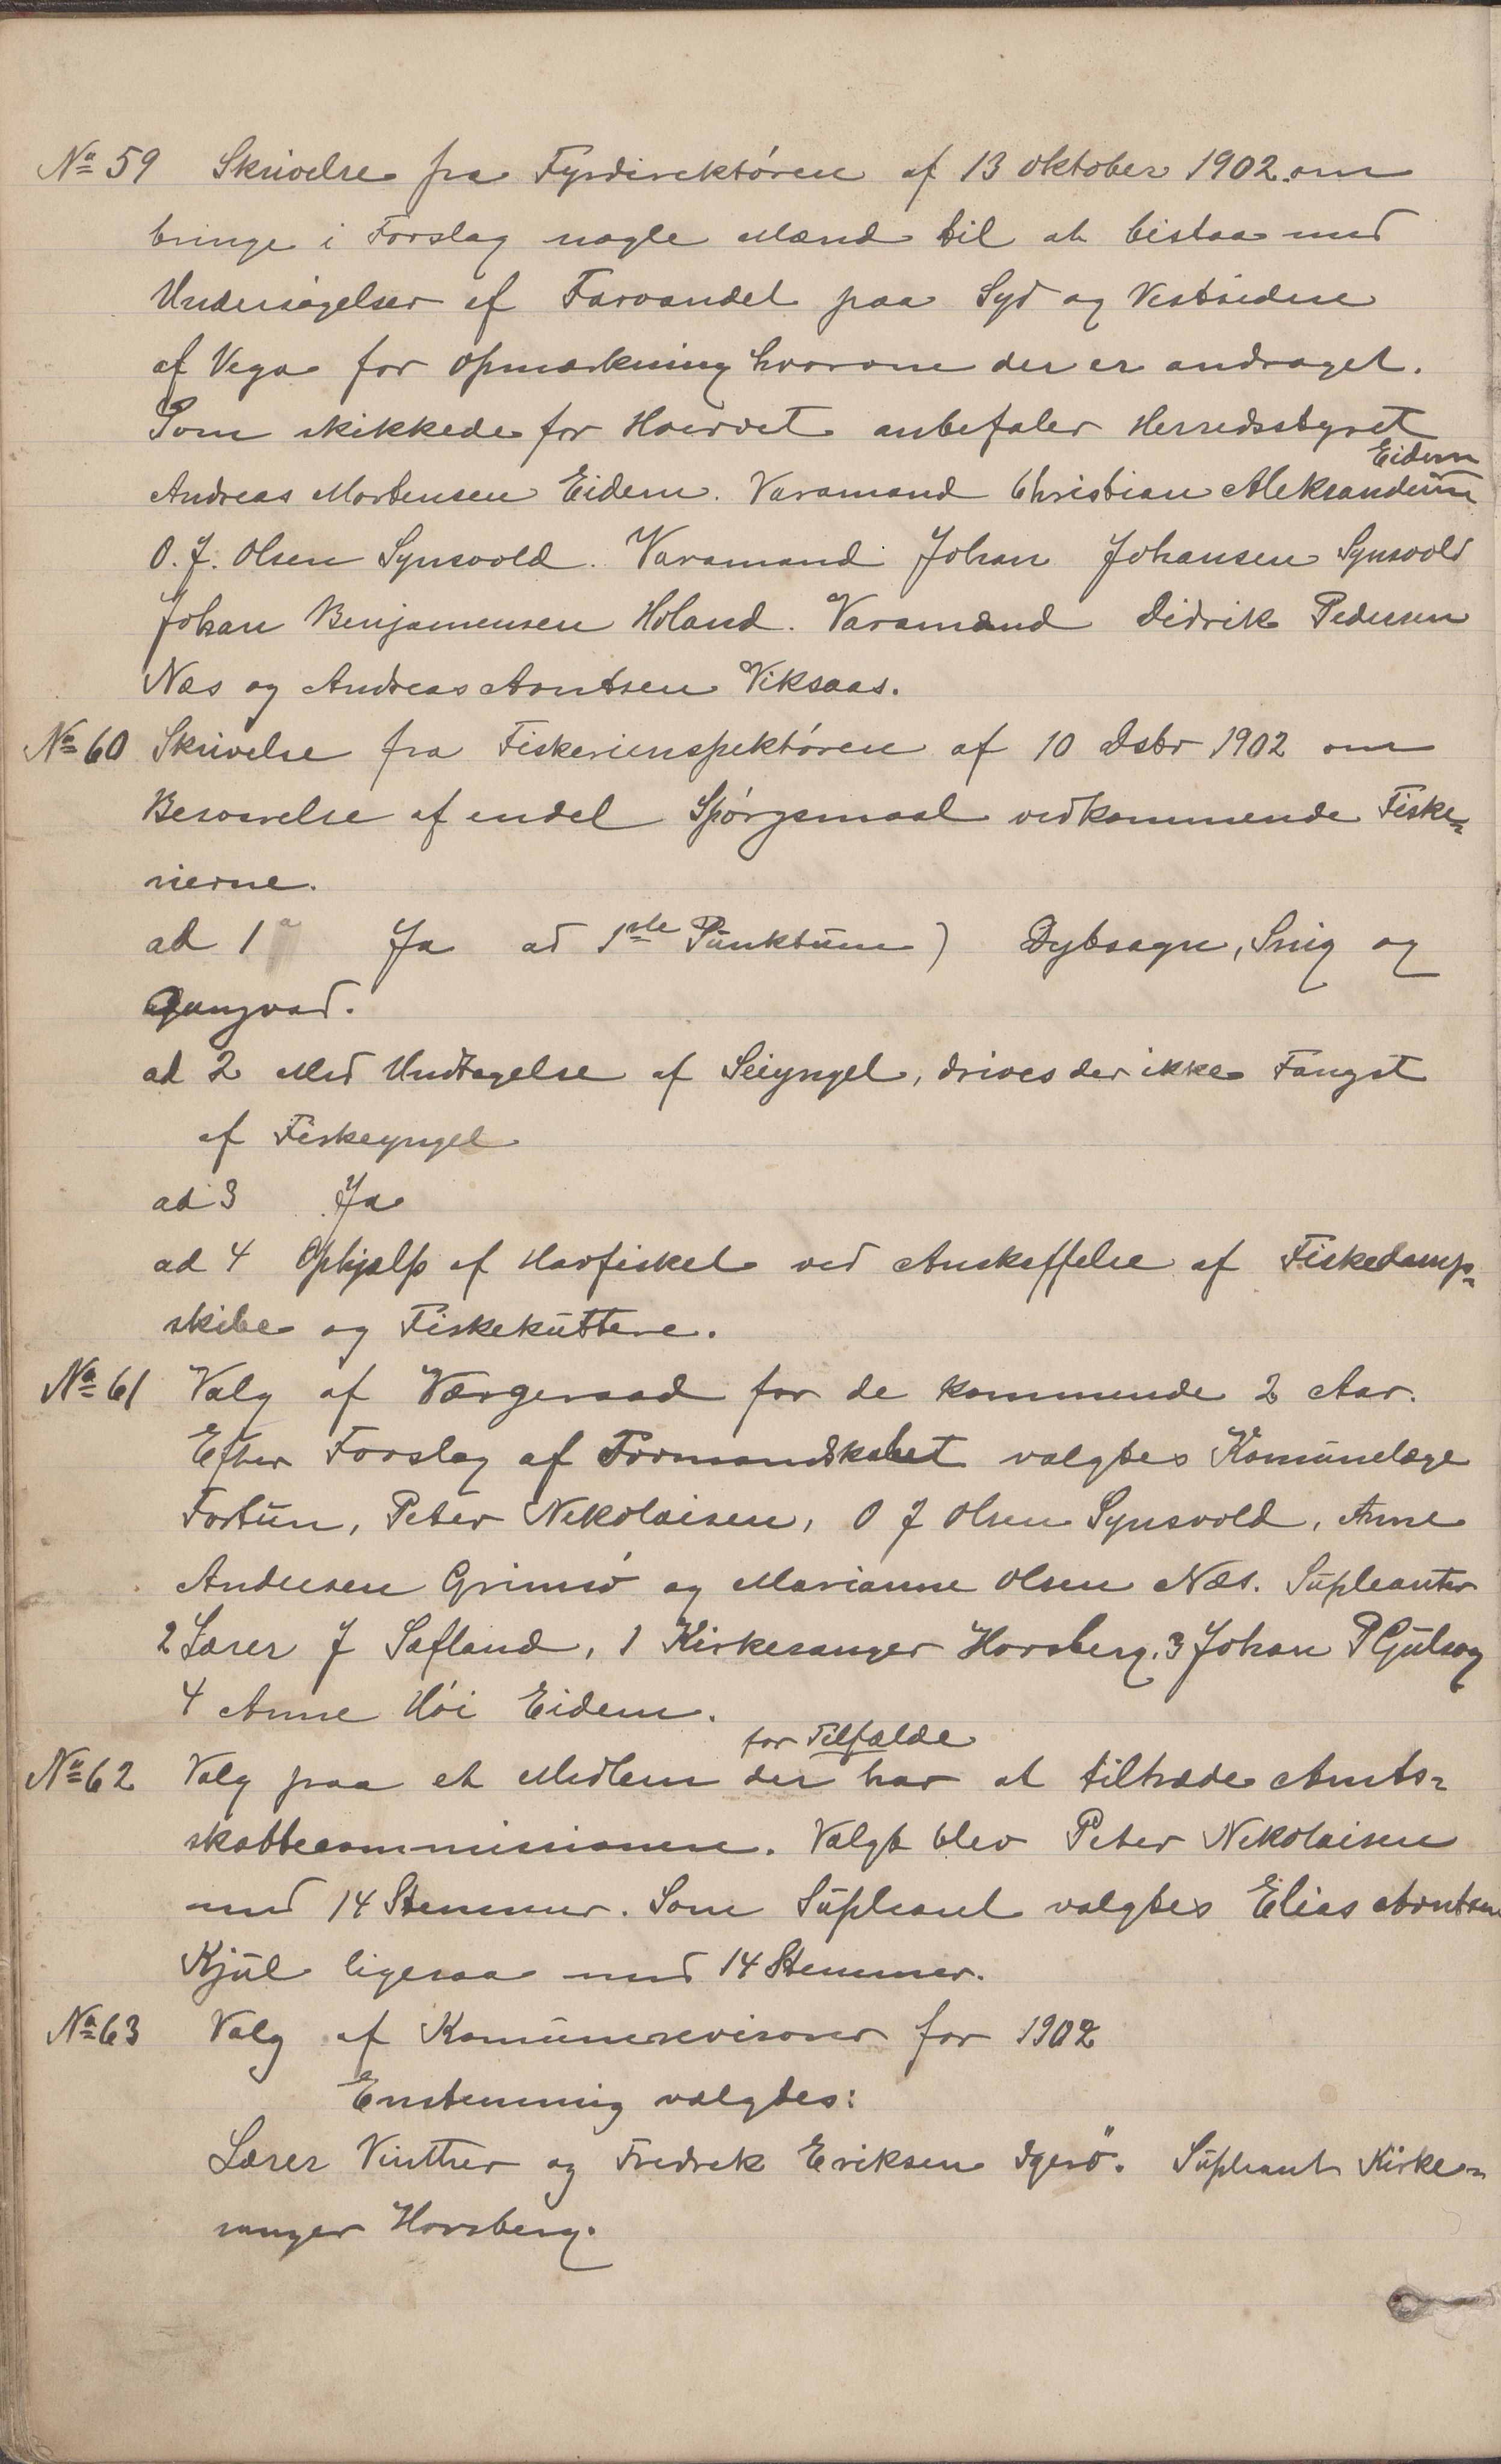 No 59 Skrivelse fra Fyrdirektøren af 13 Oktober 1902 om
bringe i Forslag nogle Mænd til at bistaa med
Undersøgelser af Farvandet paa Syd og Vestsiden
af Vega for Opmærkning hvorom der er andraget.
Som skikkede for Hvervet anbefaler Herredsstyret
Eidem
Andreas Mortensen Eidem. Varamand Christian Aleksandersen
O. J. Olsen Synsvold. Varamand Johan Johansen Synsvold
Johan Benjamensen Holand. Varamænd Didrik Pedersen
Næs og Andreas Arntsen Viksaas.
No 60 Skrivelse fra Fiskeriinspektøren af 10 Dsbr 1902 om
Besvarelse af endel Spørgsmaal vedkommende Fiske-
rierne.
ad 1 Ja ad 1ste Punktum) Dybsagn, Snig og
Gangvad.
ad 2 Med Undtagelse af Seiyngel, drives der ikke Fangst
af Fiskeyngel
ad 3 Ja
ad 4 Ophjælp af Havfisket ved Anskaffelse af Fiskedamp-
skibe og Fiskekuttere.
No 61 Valg af Værgeraad for de kommende 2 Aar.
Efter Forslag af Formandskabet valgtes Komunelæge
Fortun, Peter Nikolaisen, O J Olsen Synsvold, Anne
Andersen Grimsø og Marianne Olsen Næs. Supleanter
2 Lærer J Safland, 1 Kirkesanger Horsberg. 3 Johan P Gulsvog
4 Anne Høi Eidem.
for Tilfælde
No 62 Valg paa et Medlem der har at tiltræde Amts-
skattecommissionen. Valgt blev Peter Nikolaisen
med 14 Stemmer. Som Supleant valgtes Elias Arntsen
Kjul ligesaa med 14 Stemmer.
No 63 Valg af Komunerevisorer for 1902
Enstemmig valgtes:
Lærer Vinther og Fredrek Eriksen Igerö. Supleant Kirke-
sanger Horsberg.